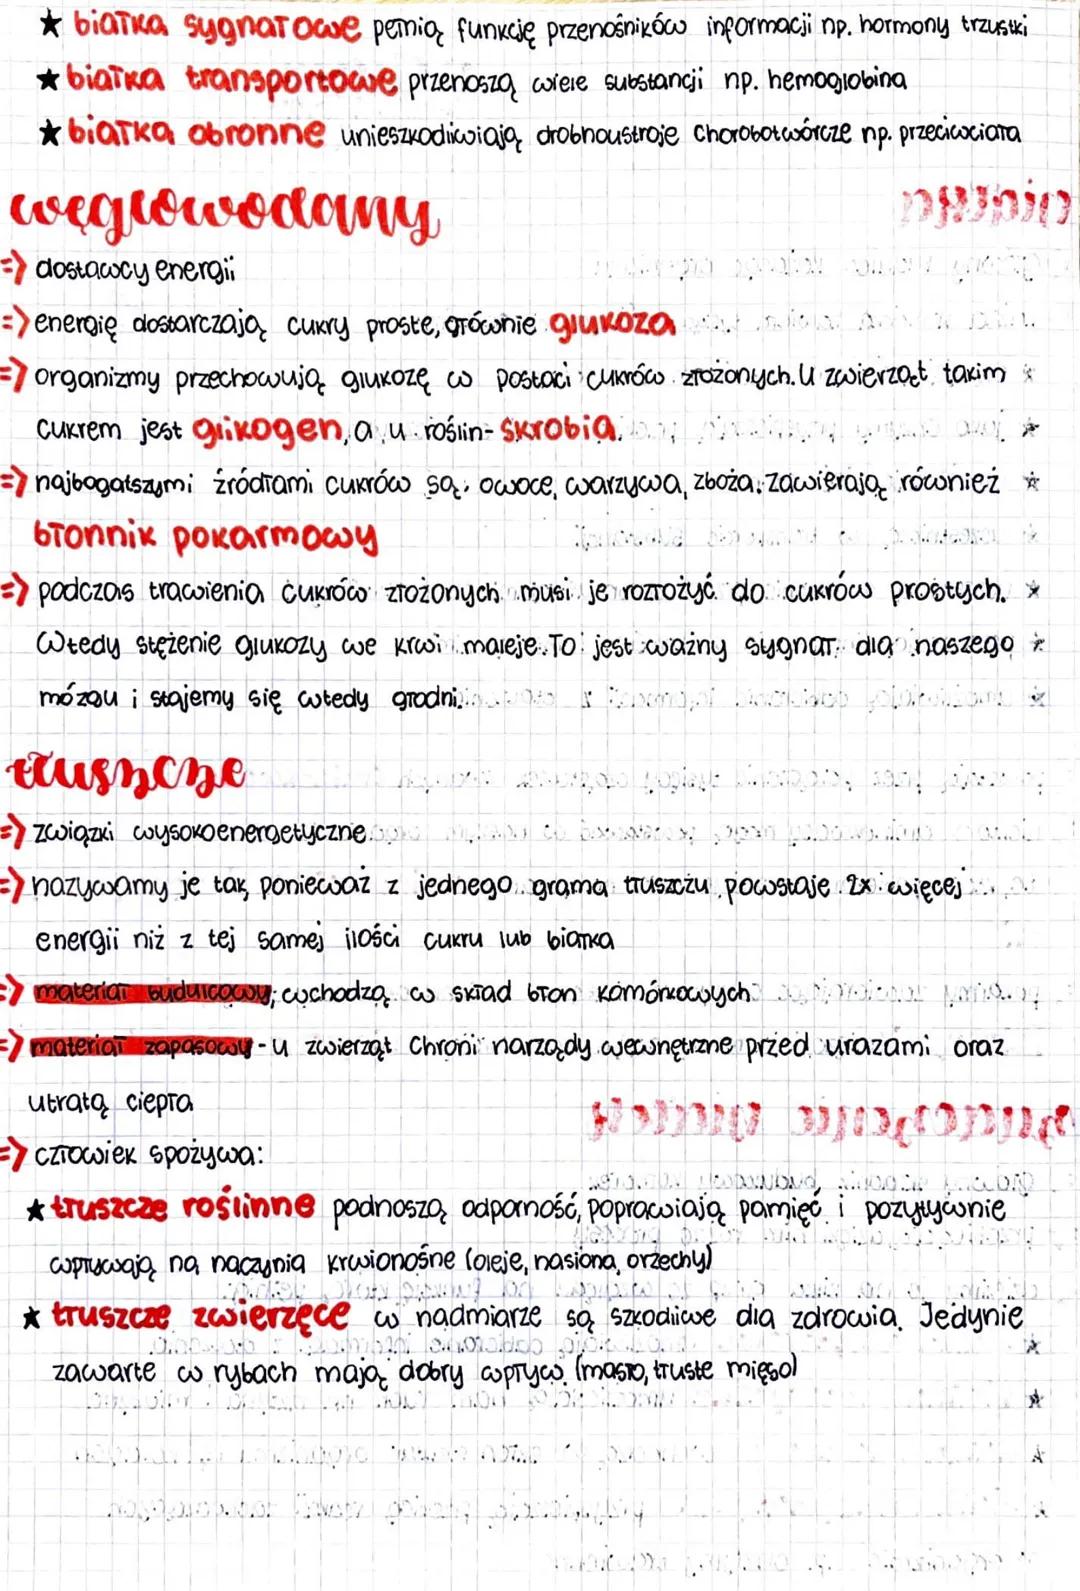 ★ białka sygnałowe pełnią funkcję przenośników informacji np. hormony trzustki
★ białka transportowe przenoszą wiele substancji np. hemoglobina
★ białka obronne unieszkodliwiają drobnoustroje chorobotwórcze np. przeciwciała
węglowodany
=> dostawcy energii
=> energię dostarczają cukry proste, głównie glukoza
=> organizmy przechowują glukozę w postaci cukrów złożonych. U zwierząt takim
cukrem jest glikogen, a u roślin- skrobia.
=> najbogatszymi źródłami cukrów są: owoce, warzywa, zboża. Zawierają również
błonnik pokarmowy
=> podczas trawienia cukrów złożonych musi je rozłożyć do cukrów prostych.
Wtedy stężenie glukozy we krwi maleje. To jest ważny sygnał dla naszego
mózgu i stajemy się wtedy głodni.
tłuszcze
=> związki wysokoenergetyczne
=> nazywamy je tak, ponieważ z jednego grama tłuszczu powstaje 2x więcej
energii niż z tej samej ilości cukru lub białka
=> materiał budulcowy; wchodzą w skład błon komórkowych
=> materiał zapasowy - u zwierząt chroni narządy wewnętrzne przed urazami oraz
utratą ciepła
=> człowiek spożywa:
★ tłuszcze roślinne podnoszą odporność, poprawiają pamięć i pozytywnie
wpływają na naczynia krwionośne (oleje, nasiona, orzechy)
★ tłuszcze zwierzęce w nadmiarze są szkodliwe dla zdrowia. Jedynie
zawarte w rybach mają dobry wpływ. (masło, tłuste mięso)